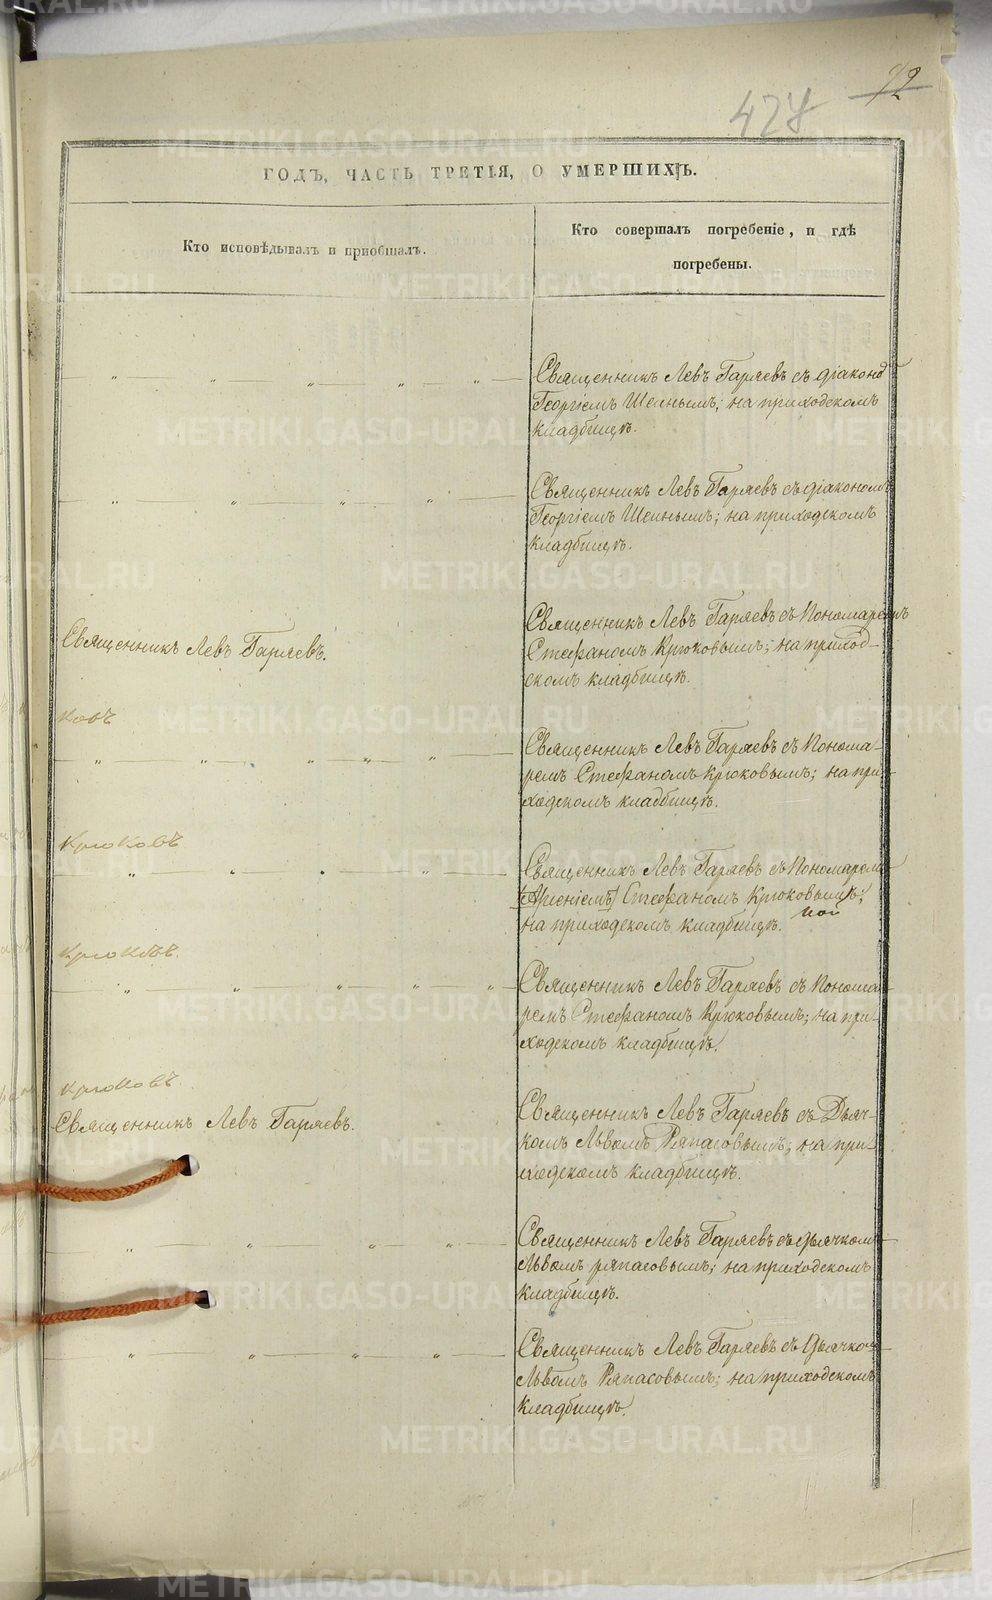 427
ГОДЪ, ЧАСТЬ ТРЕТІЯ, О УМЕРШИХЪ.
Кто исповѣдывалъ и пріобщалъ.
Кто совершалъ погребеніе, и гдѣ
погребены.
Священникъ Левъ Гаряевъ съ діаконо
Георгіемъ Шеинымъ; на приходскомъ
кладбищѣ.
Священникъ Левъ Гаряевъ съ діакономъ
Георгіемъ Шеинымъ; на приходскомъ
кладбищѣ.
Священникъ Левъ Гаряевъ.
Священникъ Левъ Гаряевъ съ Пономаремъ
Стефаномъ Крюковымъ; на приход-
скомъ кладбищѣ.
ковъ
Священникъ Левъ Гаряевъ съ Понома-
ремъ Стефаномъ Крюковымъ; на при-
ходскомъ кладбищѣ.
Крюковъ
Священникъ Левъ Гаряевъ съ Пономарем
Стефаномъ Крюковымъ;
на приходскомъ кладбищѣ.
Священникъ Левъ Гаряевъ съ Понома-
ремъ Стефаномъ Крюковымъ; на при-
ходскомъ кладбищѣ.
Крюковъ
Священникъ Левъ Гаряевъ.
Священникъ Левъ Гаряевъ съ Дьяч-
комъ Львомъ Ряпасовымъ; на при-
ходскомъ кладбищѣ.
Священникъ Левъ Гаряевъ съ дьячком
Львомъ ряпасовымъ; на приходскомъ
кладбищѣ.
Священникъ Левъ Гаряевъ съ Дьячком
Львомъ Ряпасовымъ; на приходскомъ
кладбищѣ.
METRIKI.GASO-URAL.RU